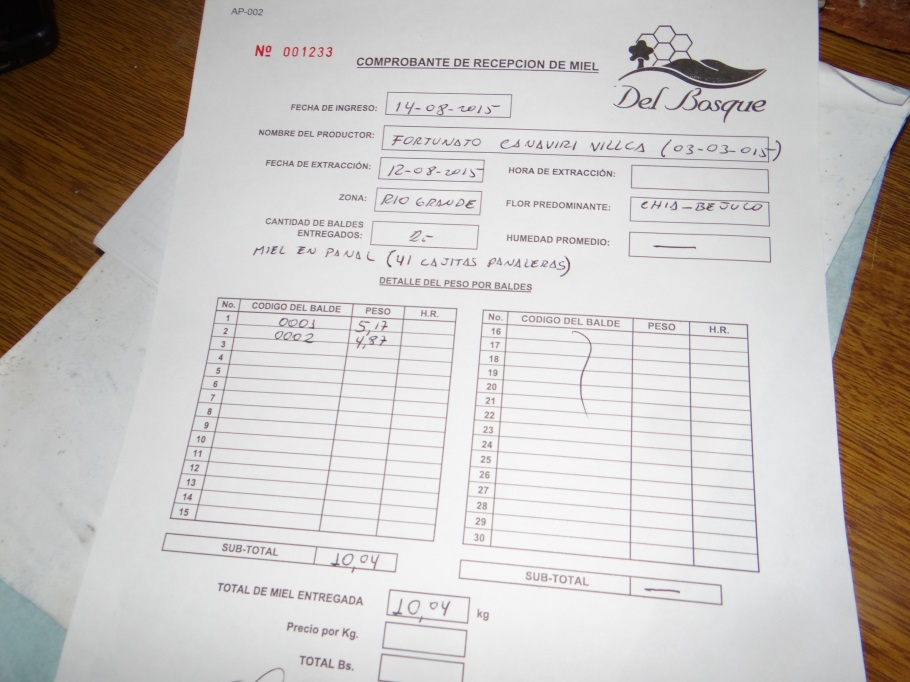 AP-002
Nº 001233
COMPROBANTE DE RECEPCION DE MIEL
Del Bosque
FECHA DE INGRESO: 14-08-2015
NOMBRE DEL PRODUCTOR: FORTUNATO CANAVIRI VILLCA (03-03-015)
FECHA DE EXTRACCIÓN: 12-08-2015 HORA DE EXTRACCIÓN:
ZONA: RIO GRANDE FLOR PREDOMINANTE: CHIA-BEJUCO
CANTIDAD DE BALDES ENTREGADOS: 2.- HUMEDAD PROMEDIO: —
MIEL EN PANAL (41 CAJITAS PANALERAS)
DETALLE DEL PESO POR BALDES
No. CODIGO DEL BALDE PESO H.R.
1 0001 5,17
2 0002 4,87
3
4
5
6
7
8
9
10
11
12
13
14
15
No. CODIGO DEL BALDE PESO H.R.
16
17
18
19
20
21
22
23
24
25
26
27
28
29
30
SUB-TOTAL 10,04
SUB-TOTAL —
TOTAL DE MIEL ENTREGADA 10,04 kg
Precio por Kg.
TOTAL Bs.